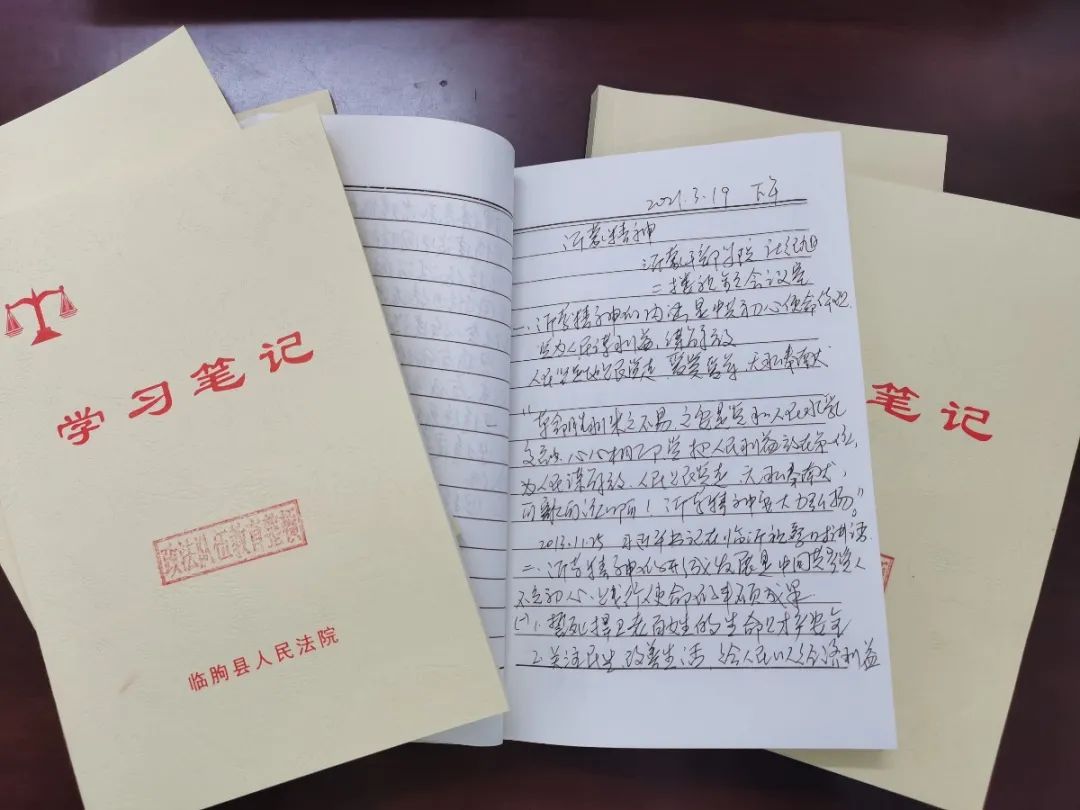 学习笔记
政法队伍教育整顿
临朐县人民法院
2021.3.19 下午
沂蒙精神
沂蒙干部学院
二楼视频会议室
一、沂蒙精神的内涵是初心使命体现
为人民谋利益、谋解放
人民坚定跟党走、爱党爱军、无私奉献
"革命胜利来之不易,主要是党和人民水乳
交融、心心相印,党把人民利益放在第一位,
为人民谋解放,人民跟党走,无私奉献,
可歌可泣啊!沂蒙精神要大力弘扬。"
2013.11.25 习近平总书记在临沂视察时讲话
二、沂蒙精神的形成发展是中国共产党人
不忘初心、践行使命的丰硕成果
(一)1、誓死捍卫老百姓的生命财产安全
2、关注民生,改善生活,给人民以经济利益
笔记